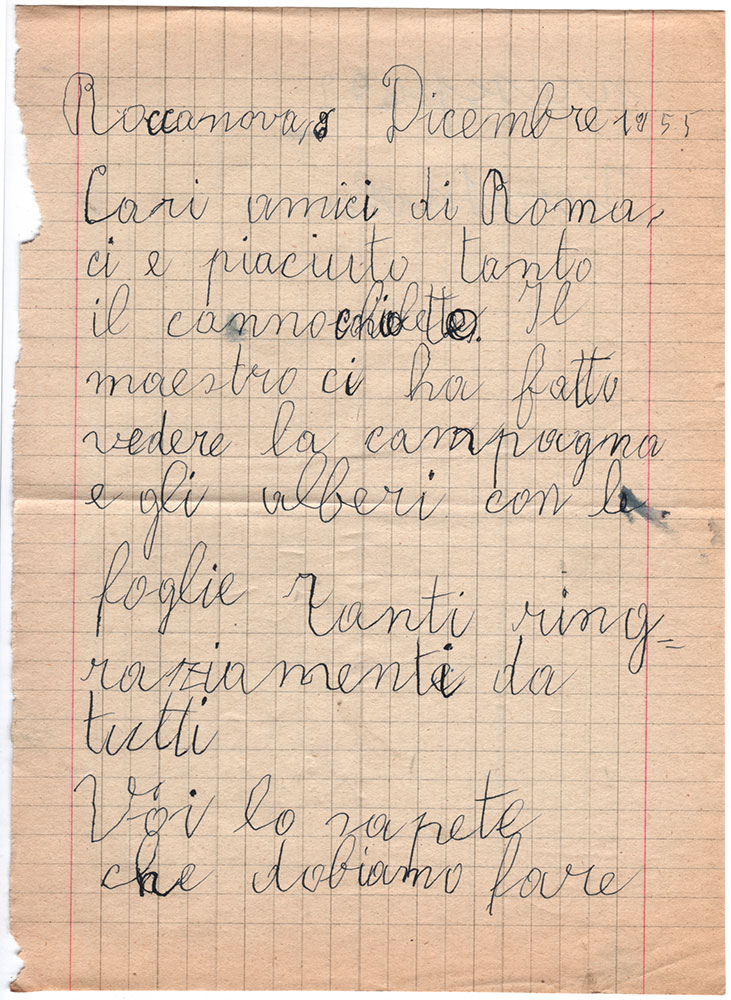 Roccanova, 8 Dicembre 1955
Cari amici di Roma,
ci e piaciuto tanto
il cannochialetto. Il
maestro ci ha fatto
vedere la campagna
e gli alberi con le
foglie Tanti ring=
raziamenti da
tutti
Voi lo sapete
che dobiamo fare